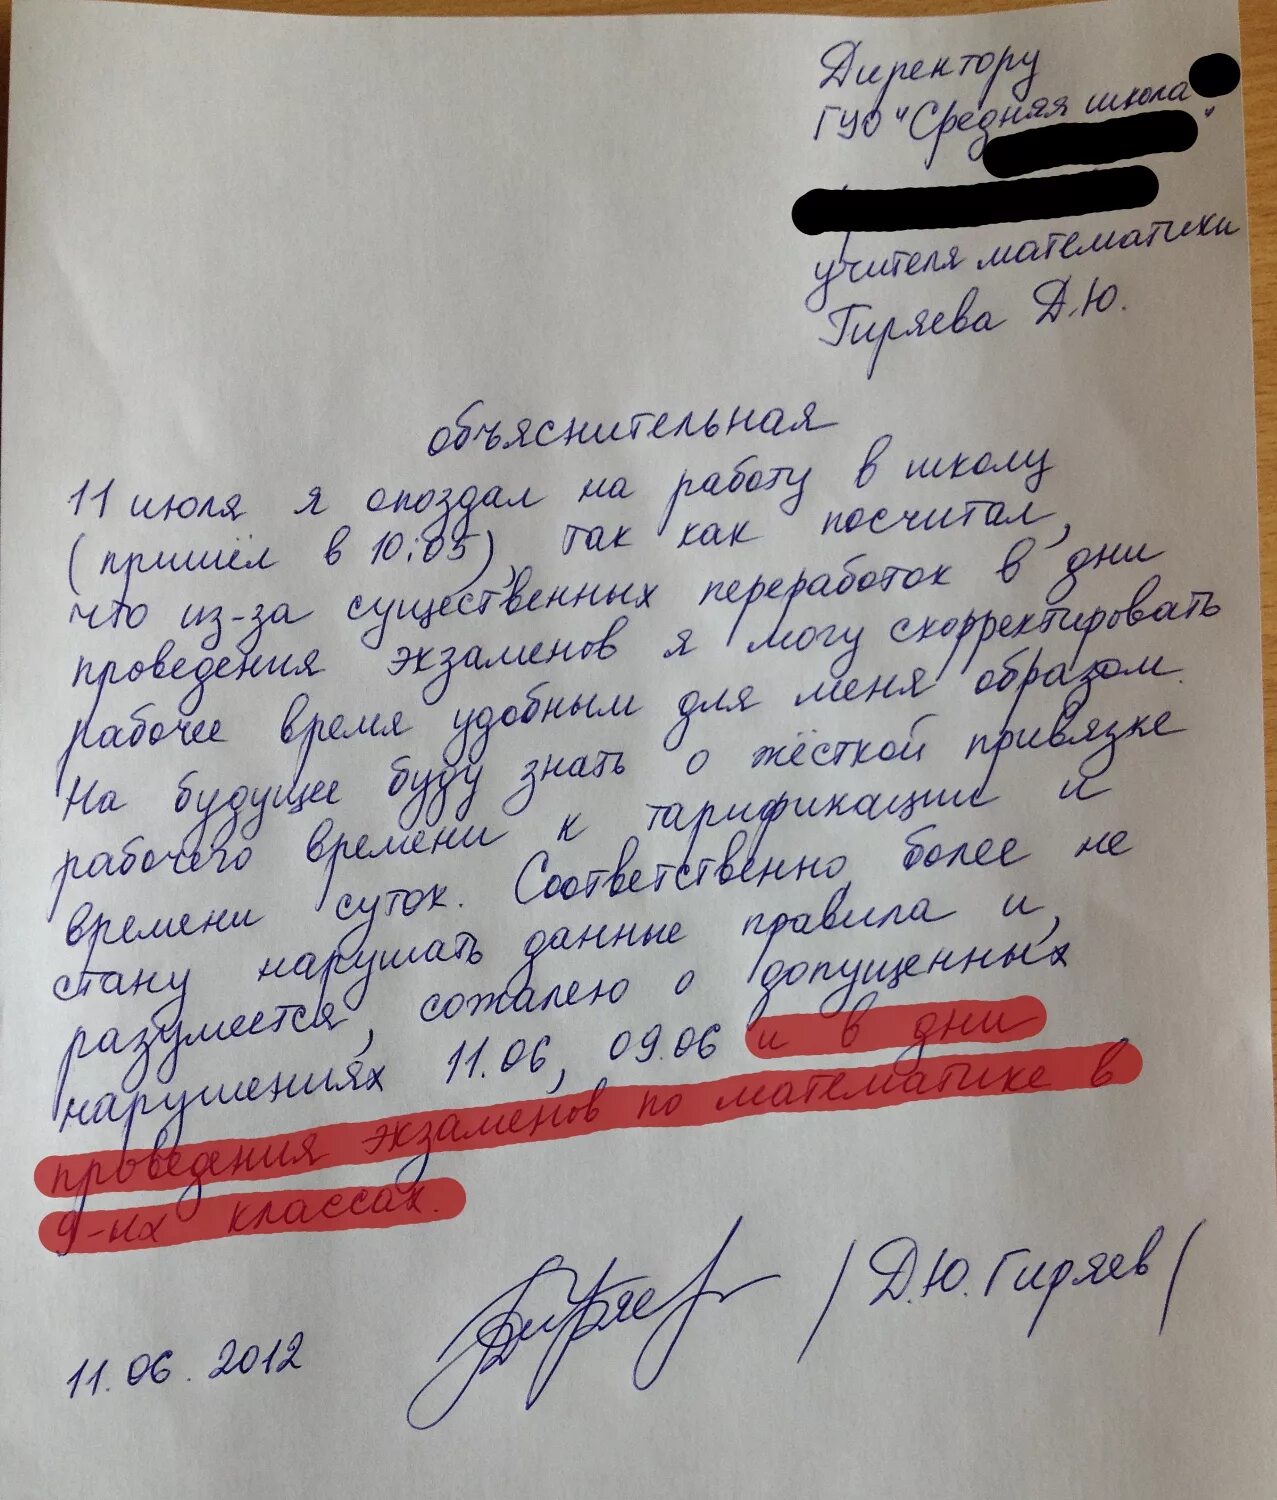 Директору
ГУО "Средняя школа
"
учителя математики
Гиряева Д.Ю.
объяснительная
11 июля я опоздал на работу в школу
(пришёл в 10:05), так как посчитал,
что из-за существенных переработок в дни
проведения экзаменов я могу скорректировать
рабочее время удобным для меня образом.
На будущее буду знать о жёсткой привязке
рабочего времени к тарификации и
времени суток. Соответственно более не
стану нарушать данные правила и,
разумеется, сожалею о допущенных
нарушениях 11.06, 09.06 и в дни
проведения экзаменов по математике в
9-их классах.
Гиряев /Д.Ю.Гиряев/
11.06.2012